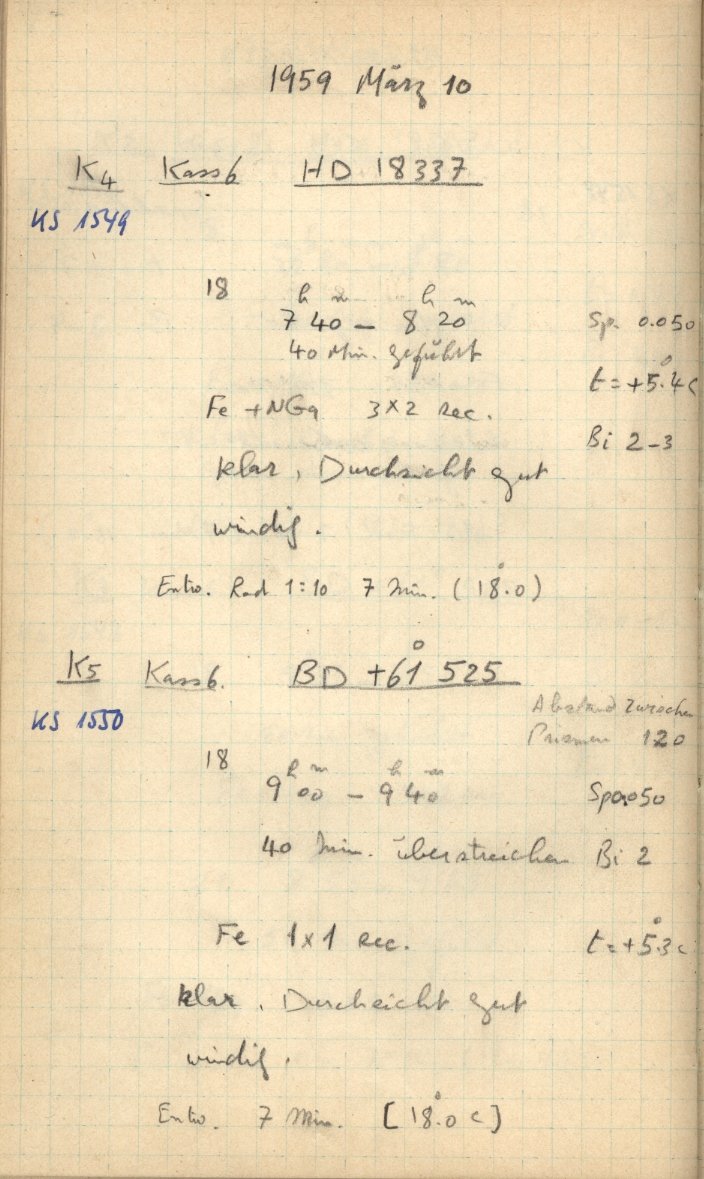 1959 März 10
K4 Kass b HD 18337
KS 1549
18 h m h m
7 40 – 8 20 Sp. 0.050
40 Min. geführt
t = +5.°4 C
Fe + NGa 3×2 sec.
Bi 2-3
klar, Durchsicht gut
windig.
Entw. Rad 1:10 7 Min. (18.°0)
K5 Kass b. BD +61° 525
KS 1550
Abstand zwischen
Prismen 120
18 h m h m
9 00 – 9 40 Sp 0.050
40 Min. überstreichen Bi 2
Fe 1×1 sec. t = +5.°3 C
klar. Durchsicht gut
windig.
Entw. 7 Min. [18.°0 C]